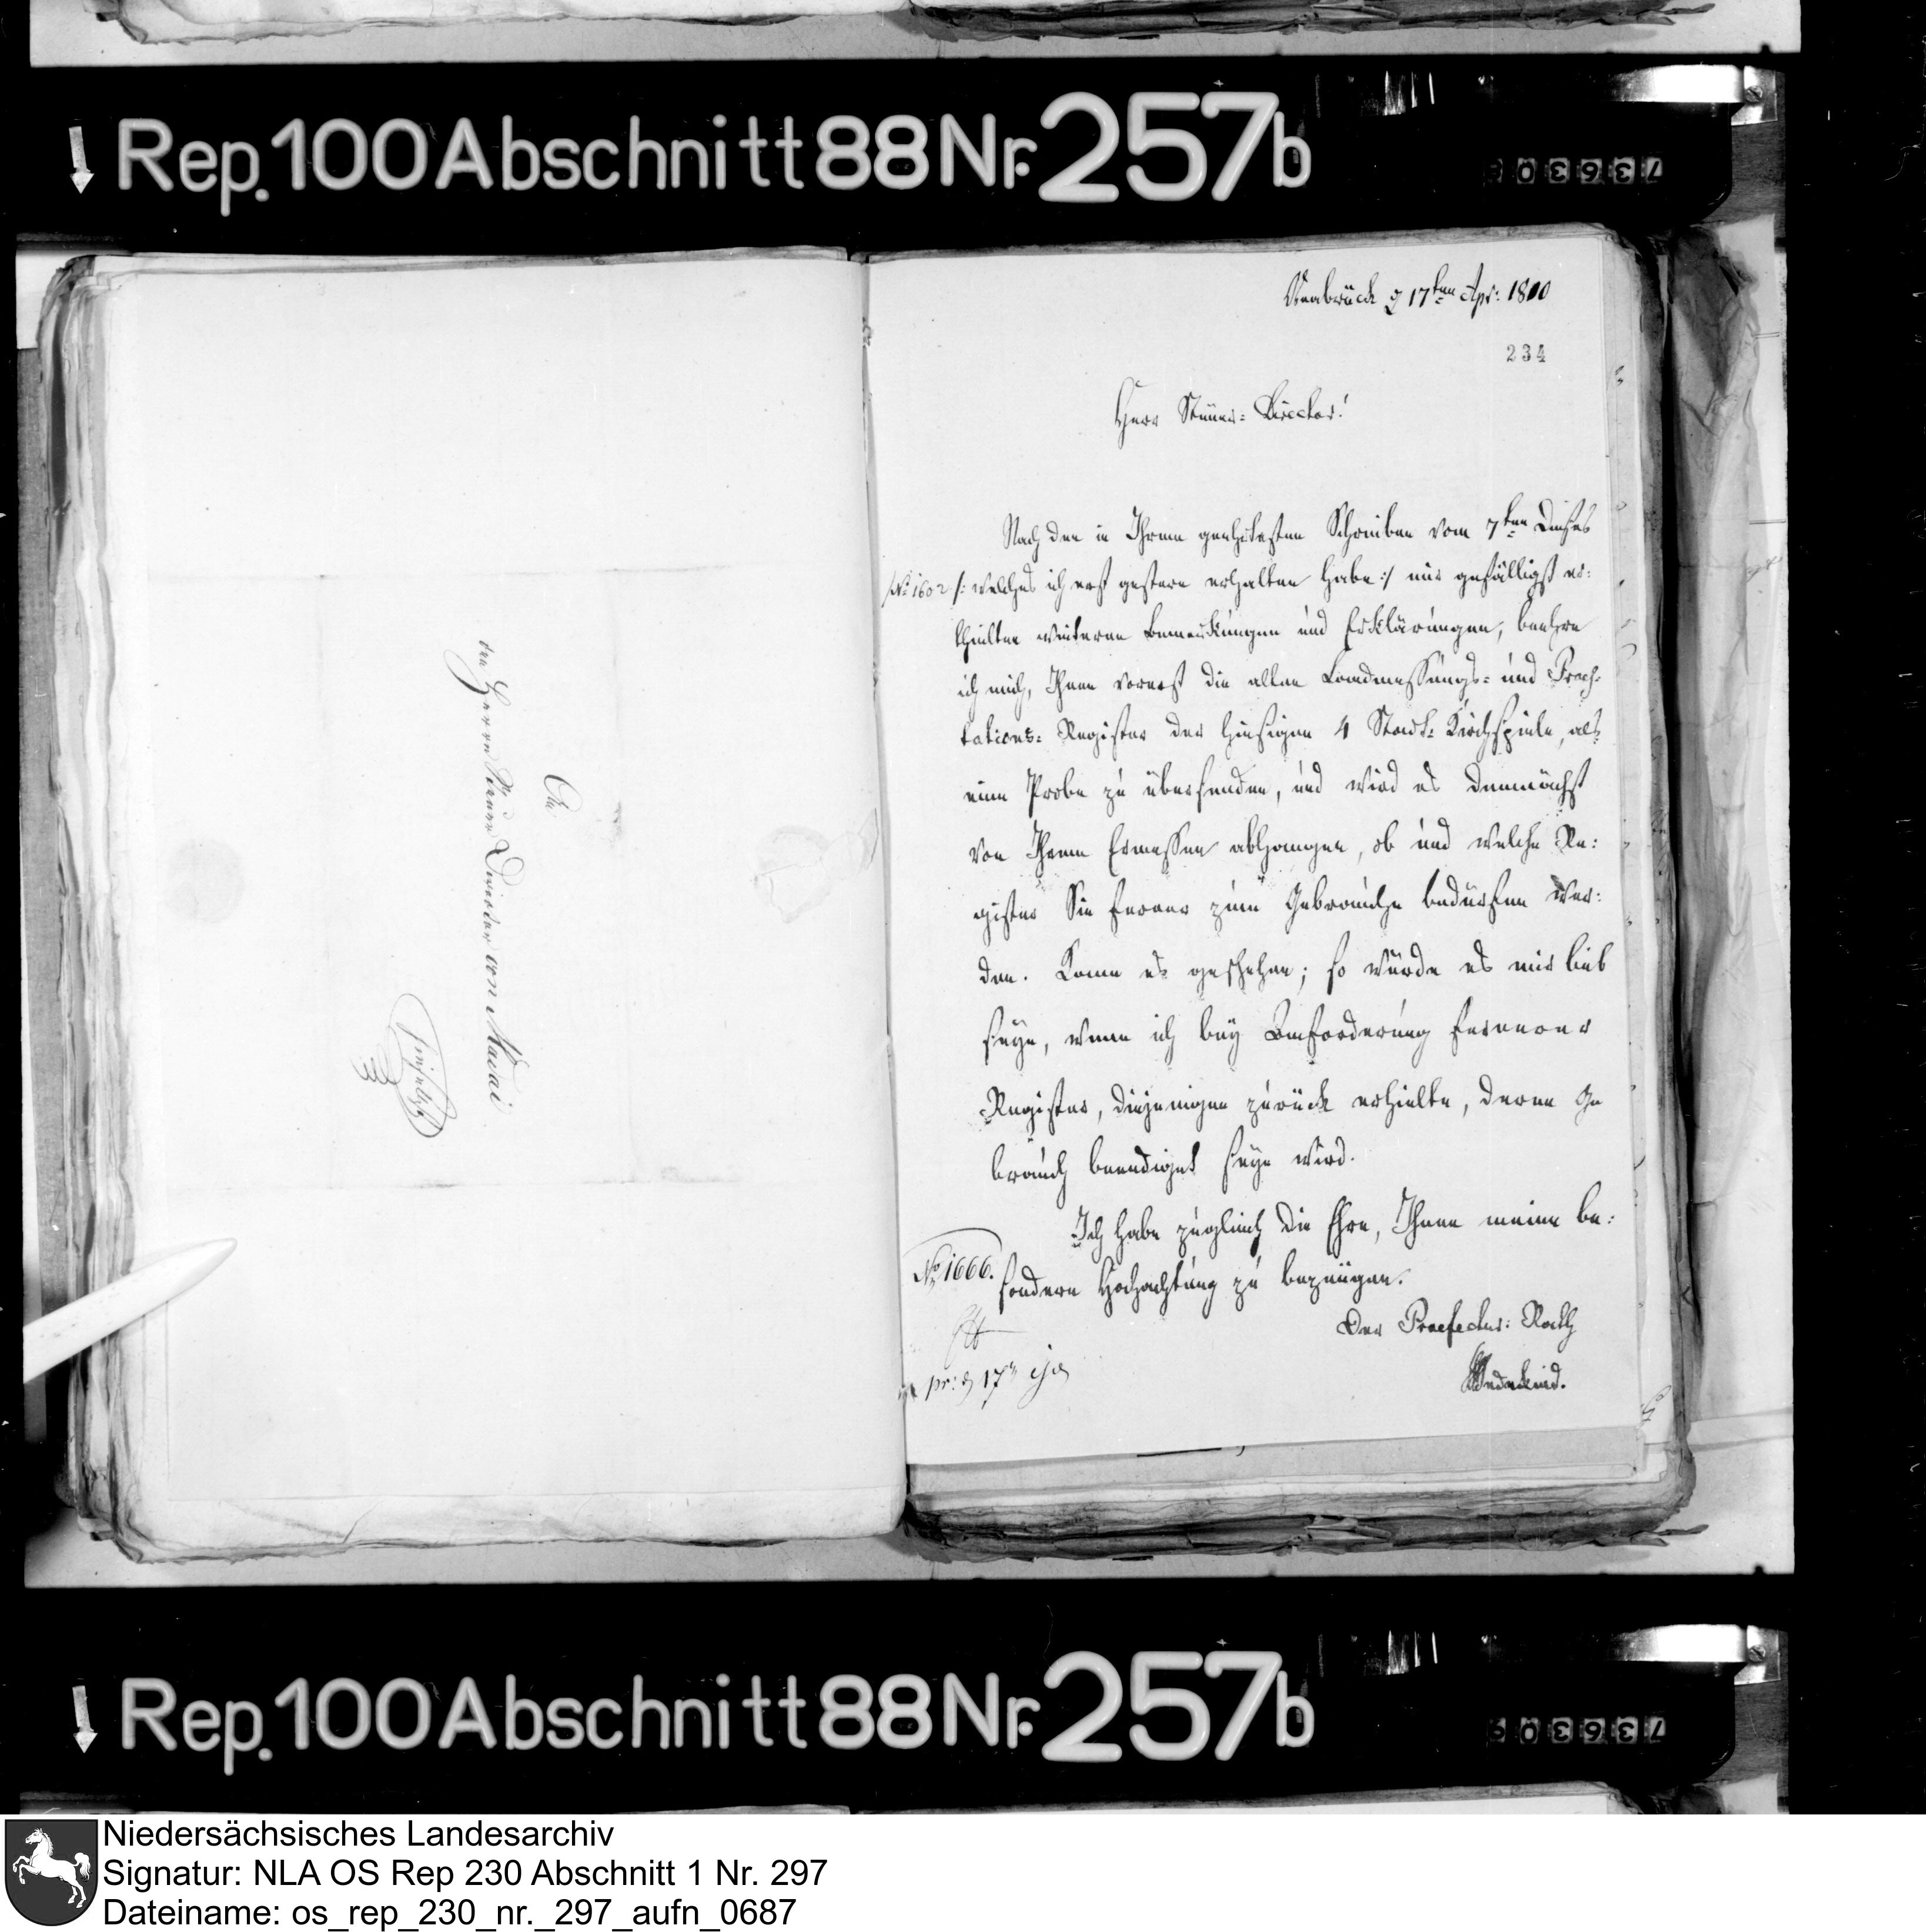 Rep. 100 Abschnitt 88 Nr. 257b
An
den Herrn Steuer Director von Mavai
Osnabrück d 17ten Apr: 1810
234
Herr Steuer-Director!
Nach den in Ihrem geehrtesten Schreiben vom 7ten Dieses
/No 1602 /: welches ich erst gestern erhalten habe :/ mir gefälligst er:
theilten weiteren Bemerkungen und Erklärungen, beehre
ich mich, Ihnen vorerst die alten Landmessungs- und Prae-
tations- Register der hiesigen 4 Stadt-Kirchspiele, als
eine Probe zu übersenden, und wird es demnächst
von Ihrem Ermessen abhangen, ob und welche Re:
gister Sie ferner zum Gebrauche bedürfen wer:
den. Kann es geschehen; so würde es mir lieb
seyn, wenn ich bey Anforderung fernerer
Register, diejenigen zurück erhielte, deren Ge
brauch beendiget seyn wird.
Ich habe zugleich die Ehre, Ihnen meine be:
sondere Hochachtung zu bezeugen.
No 1666.
Der Praefectur: Rath
pr: d 17n ej
Wedekind.
Rep. 100 Abschnitt 88 Nr. 257b
Niedersächsisches Landesarchiv
Signatur: NLA OS Rep 230 Abschnitt 1 Nr. 297
Dateiname: os_rep_230_nr._297_aufn_0687